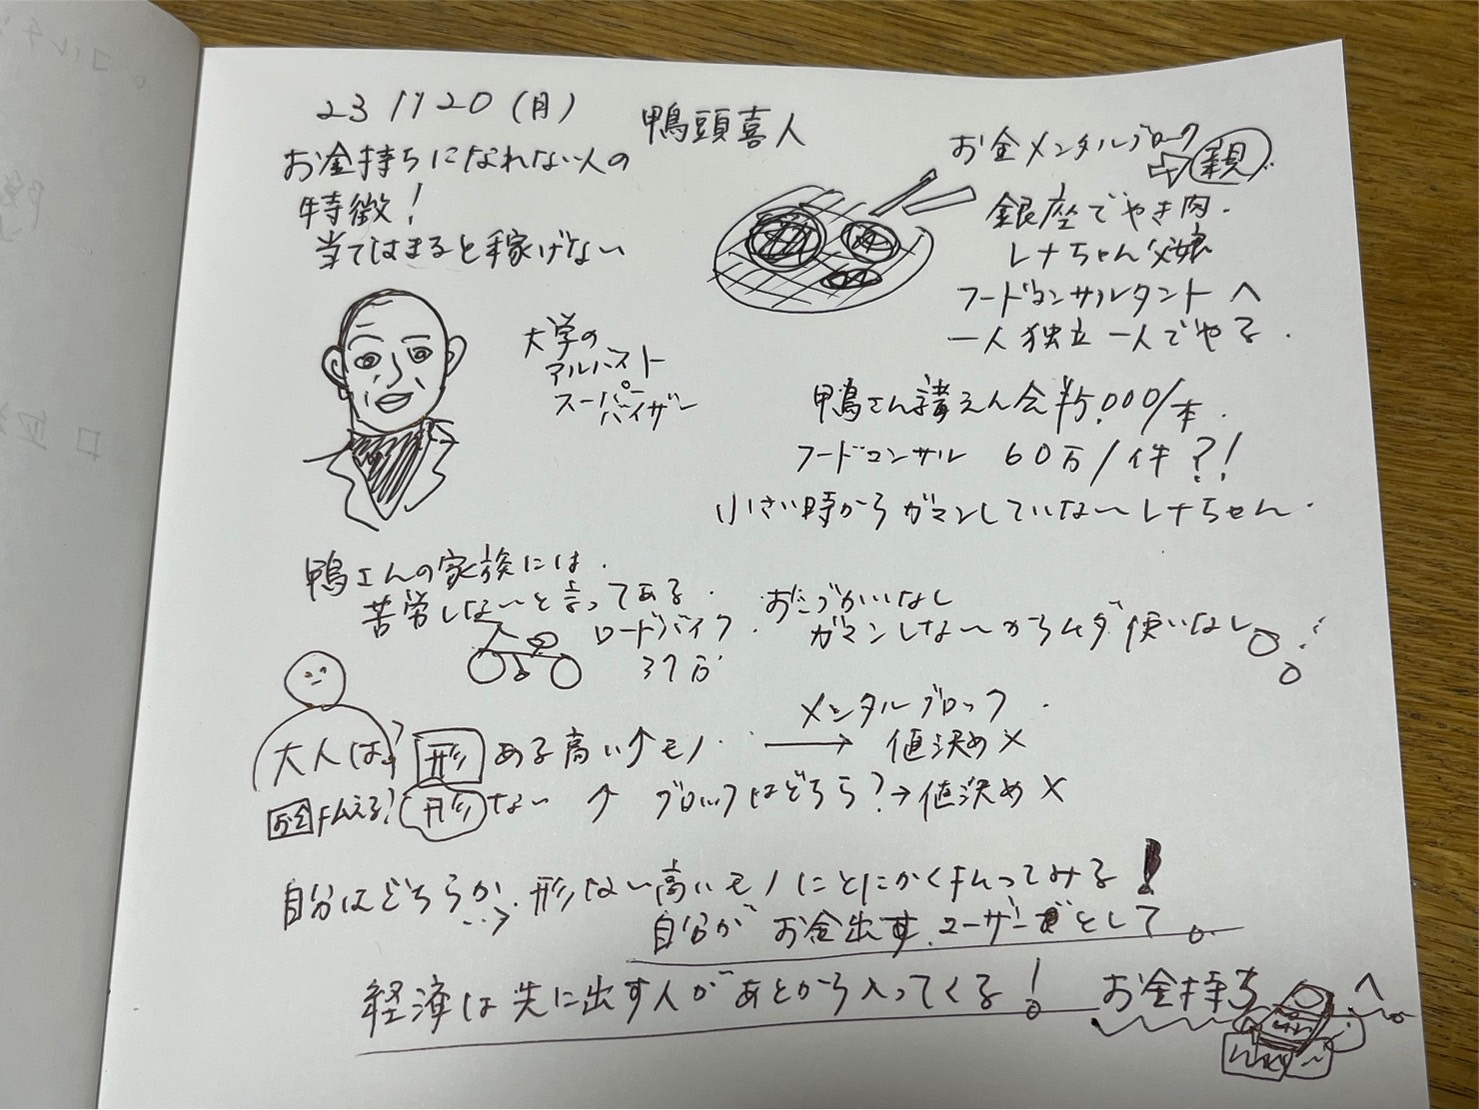 23 11 20 (月)
鴨頭喜人
お金持ちになれない人の
特徴!
当てはまると稼げない
お金メンタルブローク
親
銀座でやき肉.
レナちゃん父娘
フードコンサルタントへ
一人独立一人でやる.
大学の
アルバスト
スーパー
バイザー
鴨さん講えん会¥5,000/本.
フードコンサル 60万/件?!
小さい時からガマンしていないレナちゃん.
鴨さんの家族には.
苦労しないと言ってある.
ロードバイク
37万
おこづかいなし
ガマンしないからムダ使いなし。
大人は? 形 ある高い↑モノ. → メンタルブロック.
値決め×
お金払える? 形 ない ↑ ブロックはどちら?→値決め×
自分はどちらか.→形ない高いモノにとにかく払ってみる!
自分がお金出す.ユーザーとして。
経済は先に出す人があとから入ってくる! お金持ちへ。